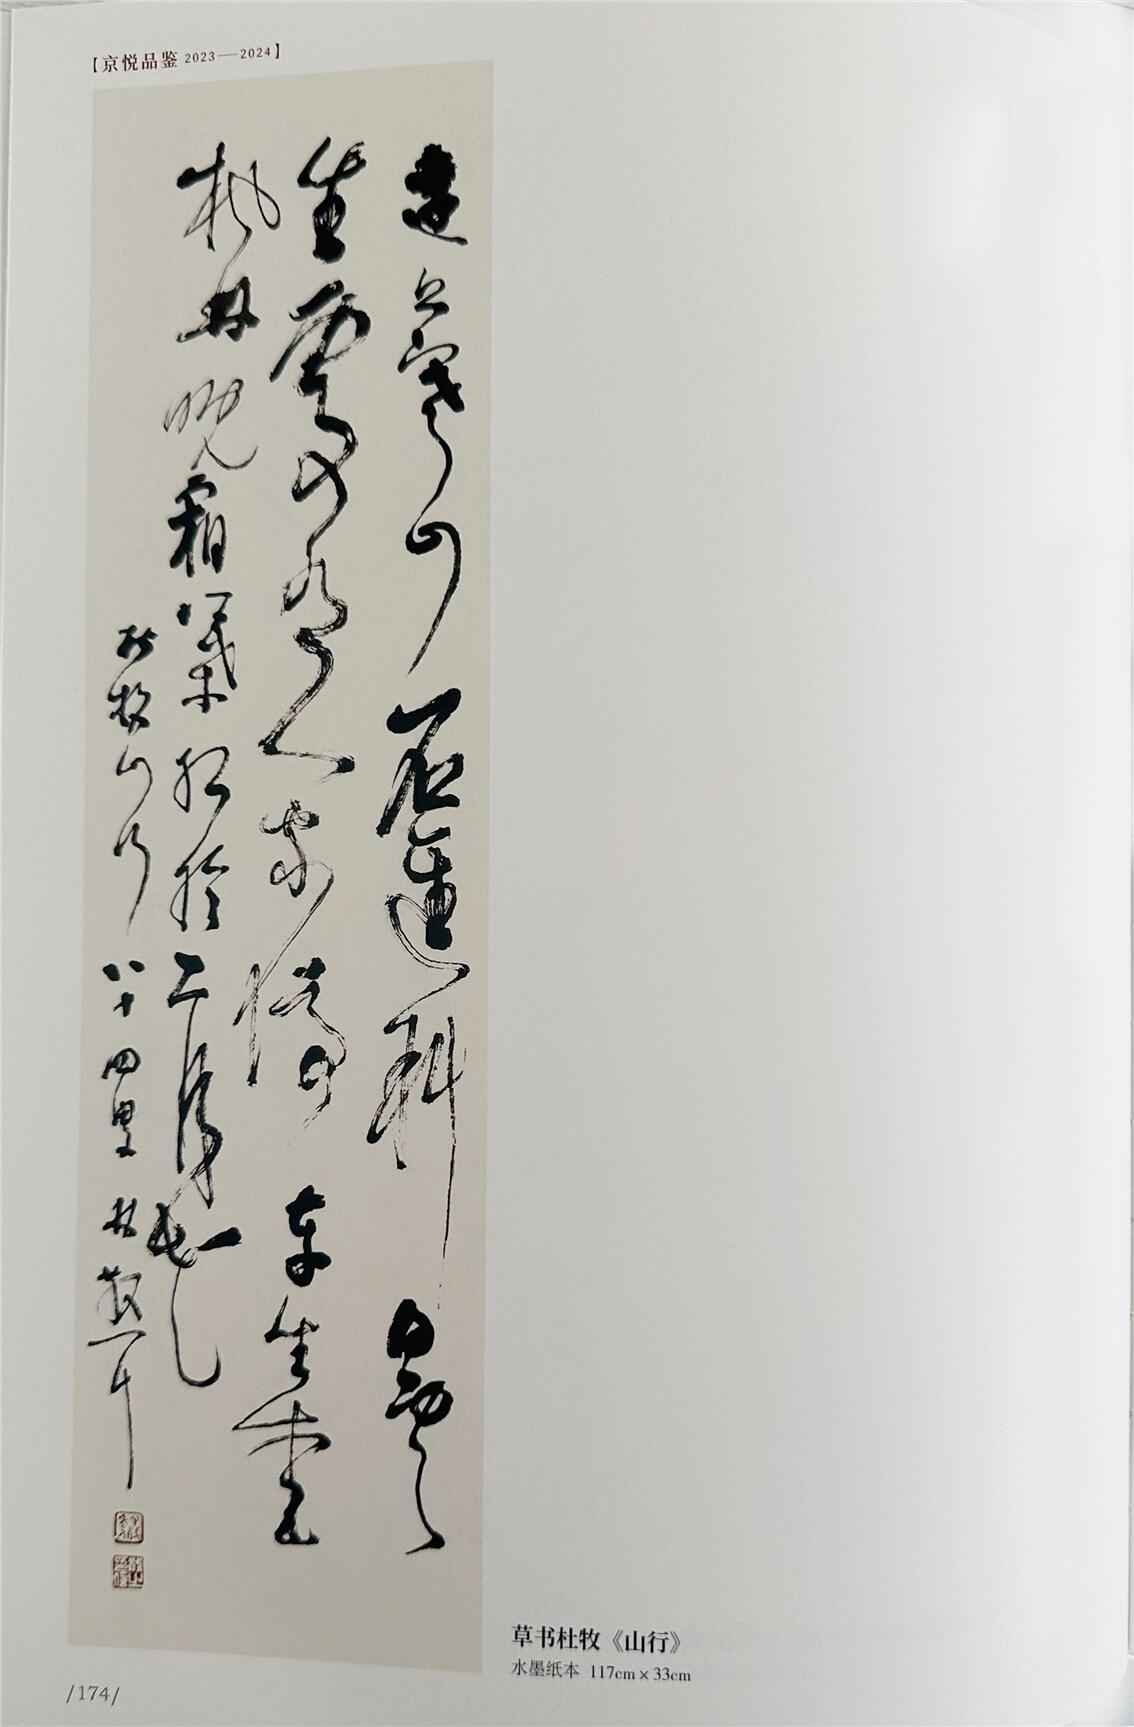 【京悦品鉴 2023——2024】
遠上寒山石迳斜白雲
生處有人家停車坐愛
楓林晚霜葉紅於二月花
杜牧山行 八十四叟 林散耳
草书杜牧《山行》
水墨纸本 117cm × 33cm
/174/